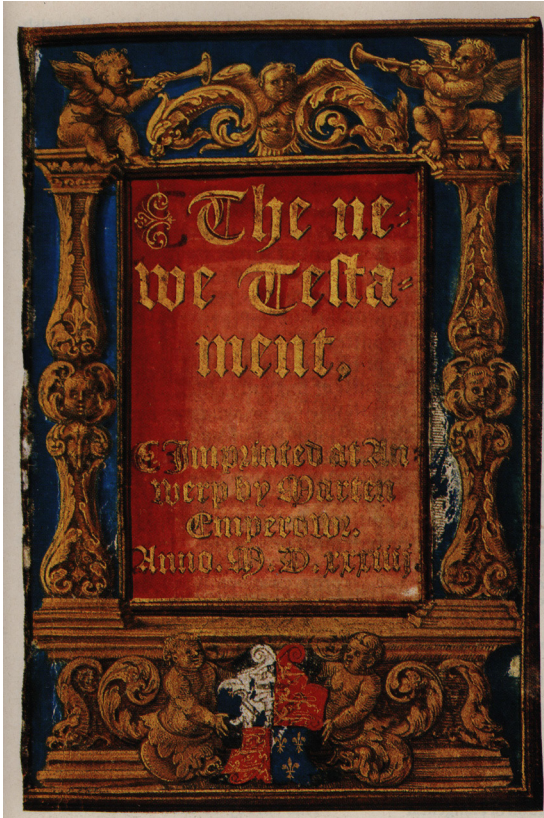 The ne=
we Testa=
ment,
Imprinted at An=
werp by Marten
Emperowr.
Anno. M. D. xxxiiij.